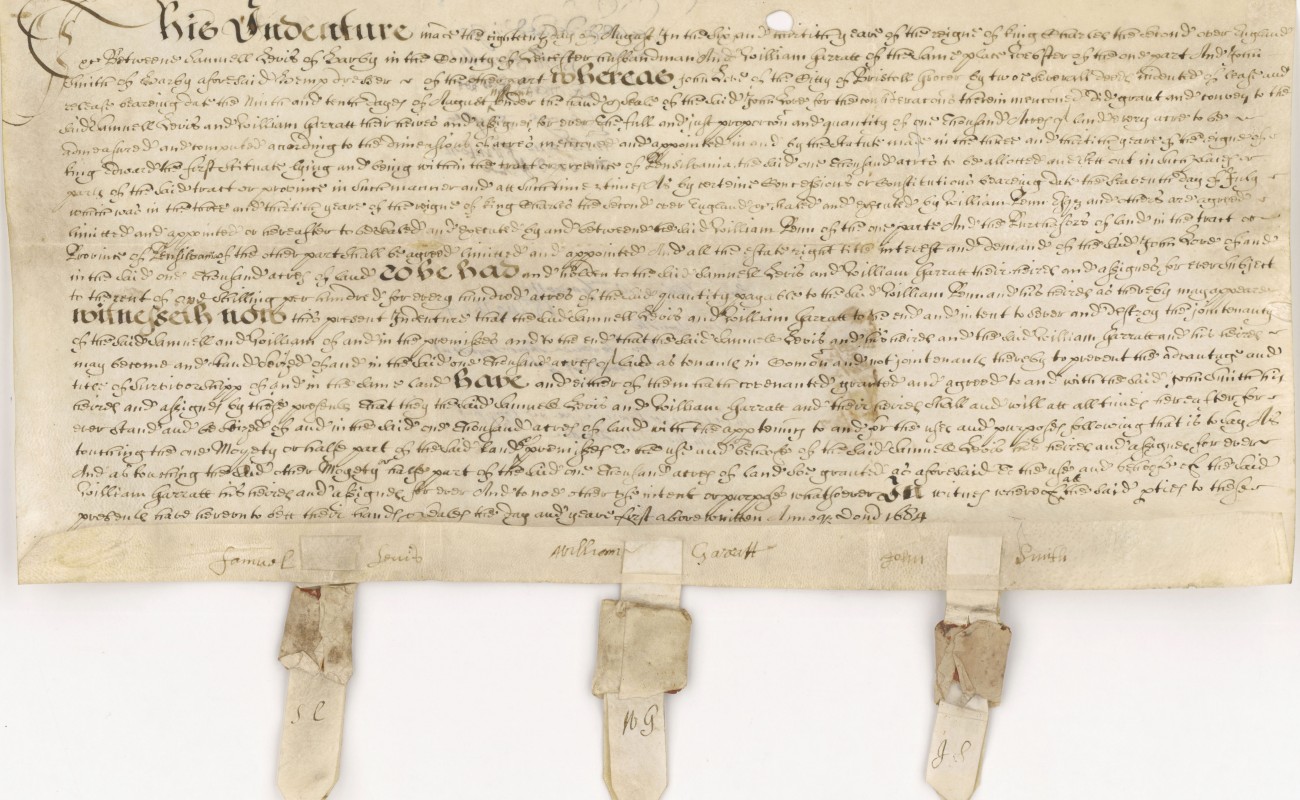 This Indenture made the eighteenth day of August In the six and thirtieth yeare of the reigne of king Charles the second over England
&c Betweene Samuell Levis of Harby in the County of Leicester husbandman And William Garratt of the same place of the one part And John
Smith of Harby aforesaid of the other part Whereas John Love of the City of Bristoll Grocer by two severall deeds indented of lease and
release beareing date the Ninth and tenth dayes of August under the hand & seale of the said John Love for the consideracons therein menconed did grant and convey to the
said Samuell Levis and William Garratt their heires and assignes for ever The full and just proporcon and quantity of one thousand Acres of land every acre to be
admeasured and computed acording to the dimensions of acres menconed and appointed in and by the Statute made in the three and thirtieth yeare of the reigne of
king Edward the first scituate lying and being within the tract or province of Pensilvania the said one thousand acres to be allotted and sett out in such places or
parts of the said tract or province in such manner and att such time & times As by certeine Concessions or Constitutions beareing date the Eleaventh day of July
which was in the three and thirtieth yeare of the reigne of king Charles the Second over England &c sealed and executed by William Penn Esq and others are agreed
limitted and appointed or hereafter to be sealed and executed by and betweene the said William Penn of the one parte And the Purchasors of land in the tract or
Province of of the other part shall be agreed limitted and appointed And all the estate right title interest and demand of the said John Love of and
in the said one thousand acres of land To be had and holden to the said Samuell Levis and William Garratt their heires and assignes for ever subject
to the rent of one shilling per hundred for every hundred acres of the said quantity payable to the said William Penn and his heires as thereby may appeare
Witnesseth now this present Indenture that the said Samuell Levis and William Garratt to the end and intent to sever and destroy the joint tenancy
of the said Samuell and William of and in the premisses and to the end that the said Samuell Levis and his heires and the said William Garratt and his heires
may become and stand seized of and in the said one thousand acres of land as tenants in Comon and not joint tenants thereby to prevent the advantage and
title of Survivorshipp of and in the same land Have and either of them hath covenanted granted and agreed to and with the said John Smith his
heires and assignes by these presents That they the said Samuell Levis and William Garratt and their heires shall and will att all times hereafter for
ever stand and be seized of and in the said one thousand acres of land with the apptenncs to and for the uses and purposes following that is to say As
touching the one Moyety or halfe part of the said land & premisses To the use and behoofe of the said Samuell Levis his heires and assignes for ever
And as touching the said other Moyety or halfe part of the said one thousand acres of land soe granted as aforesaid To the use and behoofe of the said
William Garratt his heires and assignes for ever And to noe other use intent or purpose whatsoever In witnes whereof all the said pties to these
presents have hereunto sett their hands & seales the day and yeare first above written Annoq Dom 1684
Samuel Levis William Garatt John Smith
S L W G J S